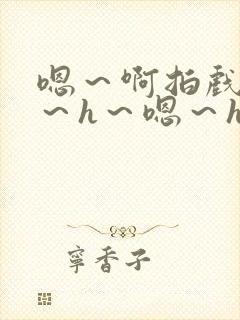 嗯～啊拍戏
～h～嗯～h
寜香子